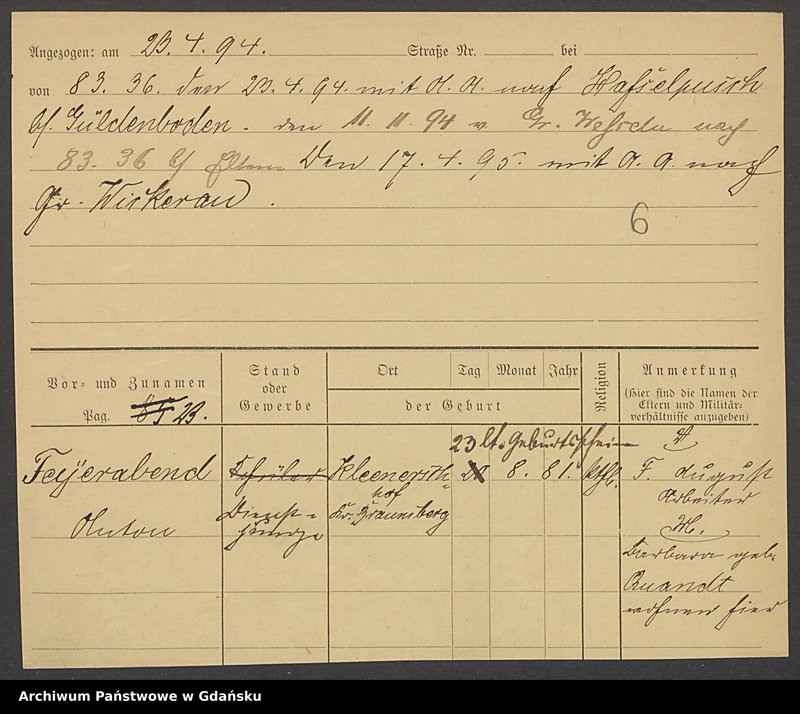 Angezogen: am 23. 4. 94. Straße Nr. bei
von 83. 36. den 23. 4. 94. mit A. A. nach Hasselpusch
bf. Güldenboden. den 11. 11. 94 v. Gr. nach
83. 36 Eltern Den 17. 4. 95. mit A. A. nach
Gr. Wickerau.
6
Vor- und Zunamen
Pag. 23.
Stand
oder
Gewerbe
Ort Tag Monat Jahr
der Geburt
Religion
Anmerkung
(Hier sind die Namen der
Eltern und Militär-
verhältnisse anzugeben)
23 lt. Geburtsschein
Feyerabend
Anton
Schüler
Dienst-
junge
Kleenersch-
hof
Kr. Braunsberg
20 8. 81. kthl.
V.
F. August
Arbeiter
M.
Barbara geb.
Quandt
wohnen hier
Archiwum Państwowe w Gdańsku